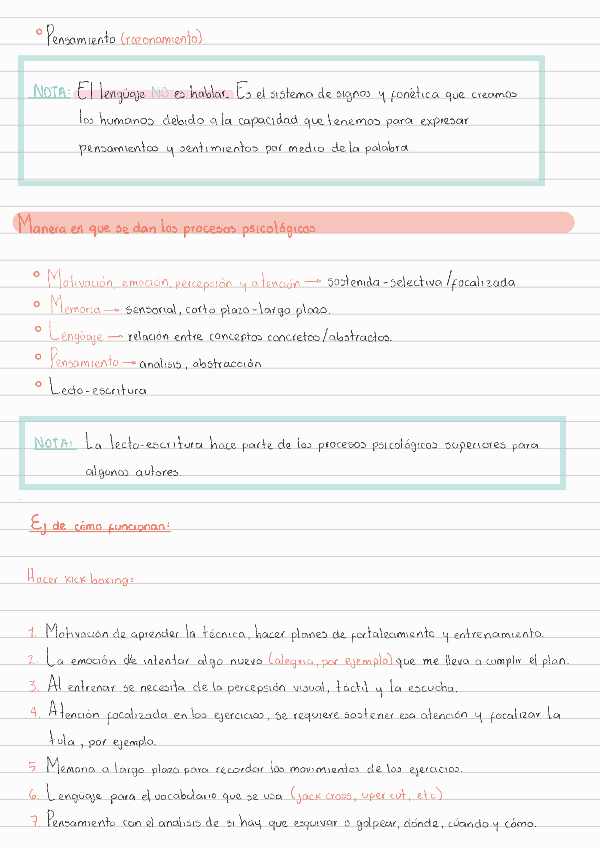 Pensamiento (razonamiento)
NOTA: El lengüaje NO es hablar. Es el sistema de signos y fonética que creamos
los humanos debido a la capacidad que tenemos para expresar
pensamientos y sentimientos por medio de la palabra
Manera en que se dan los procesos psicológicos
Motivación, emoción, percepción y atención → sostenida-selectiva/focalizada
Memoria → sensorial, corto plazo-largo plazo.
Lengüaje → relación entre conceptos concretos/abstractos.
Pensamiento → analisis, abstracción
Lecto-escritura
NOTA: La lecto-escritura hace parte de los procesos psicológicos superiores para
algunos autores.
Ej de cómo funcionan:
Hacer kick boxing:
1. Motivación de aprender la técnica, hacer planes de fortaleamiento y entrenamiento.
2. La emoción de intentar algo nuevo (alegria, por ejemplo) que me lleva a cumplir el plan.
3. Al entrenar se necesita de la percepsión visual, táctil y la escucha.
4. Atención focalizada en los ejercicios, se requiere sostener esa atención y focalizar la
tula, por ejemplo.
5. Memoria a largo plazo para recordar los movimientos de los ejercicios.
6. Lengüaje para el vocabulario que se usa (jack cross, uper cut, etc)
7. Pensamiento con el analisis de si hay que esquivar o golpear, dónde, cuándo y cómo.